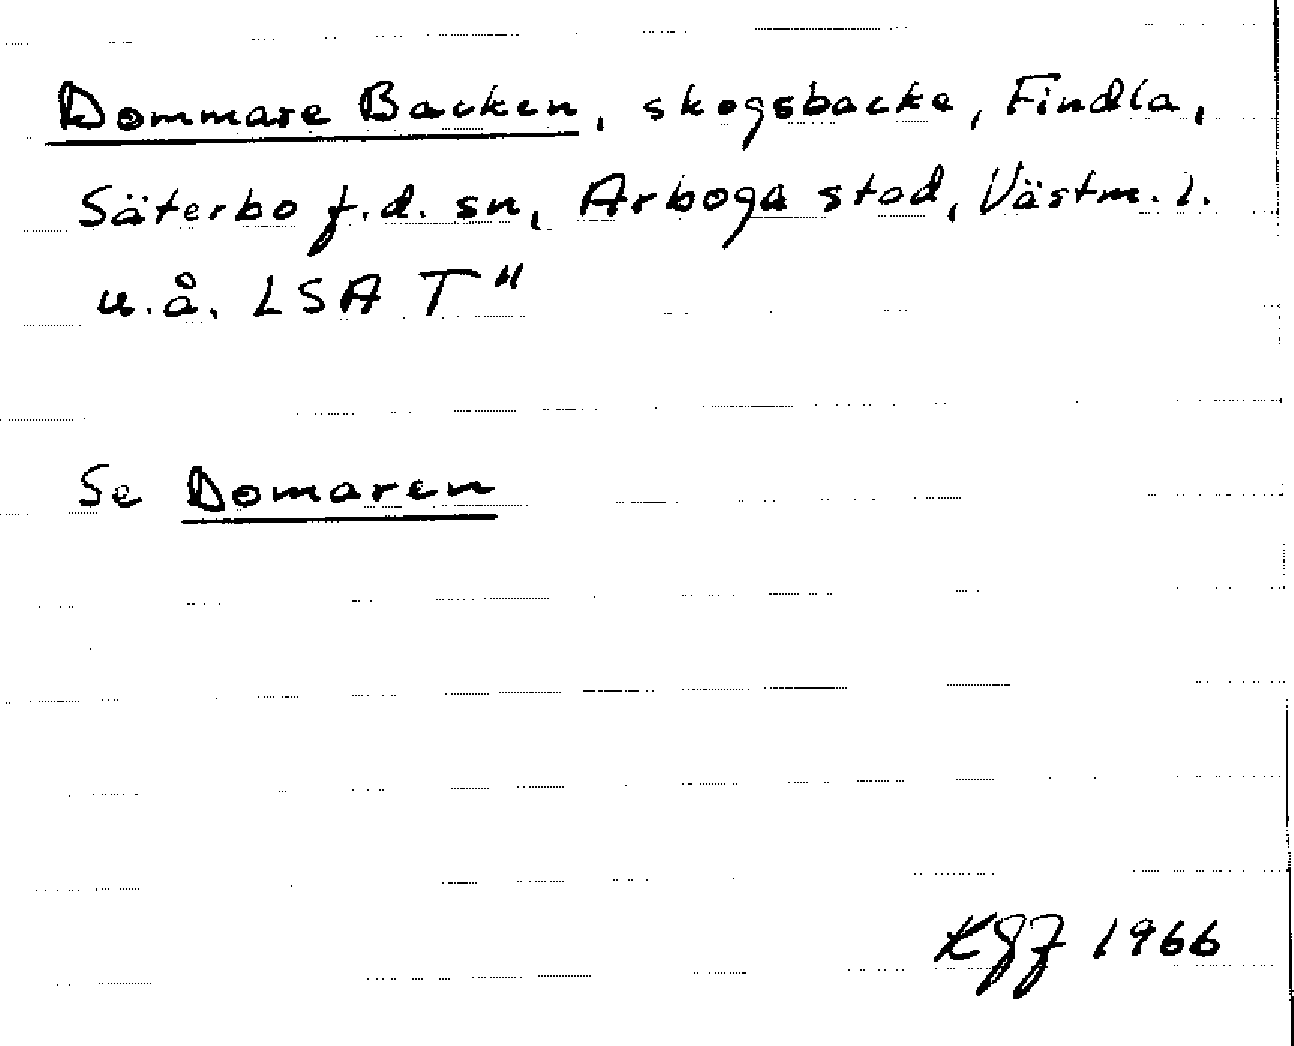 Dommare Backen, skogsbacke, Findla,
Säterbo f.d. sn, Arboga stad, Västm. l.
u.å. LSA T"
Se Domaren
1966